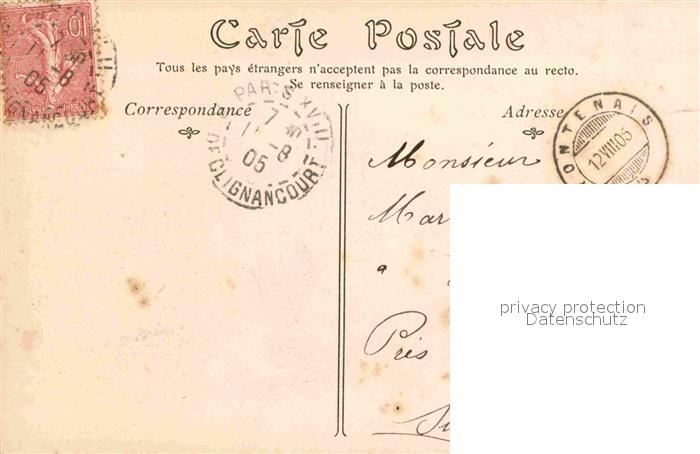 Carte Postale
Tous les pays étrangers n'acceptent pas la correspondance au recto.
Se renseigner à la poste.
Correspondance
Adresse
10
PARIS XVIII
7
05
CLIGNANCOURT
12.VIII.05
Monsieur
privacy protection
Datenschutz
Près